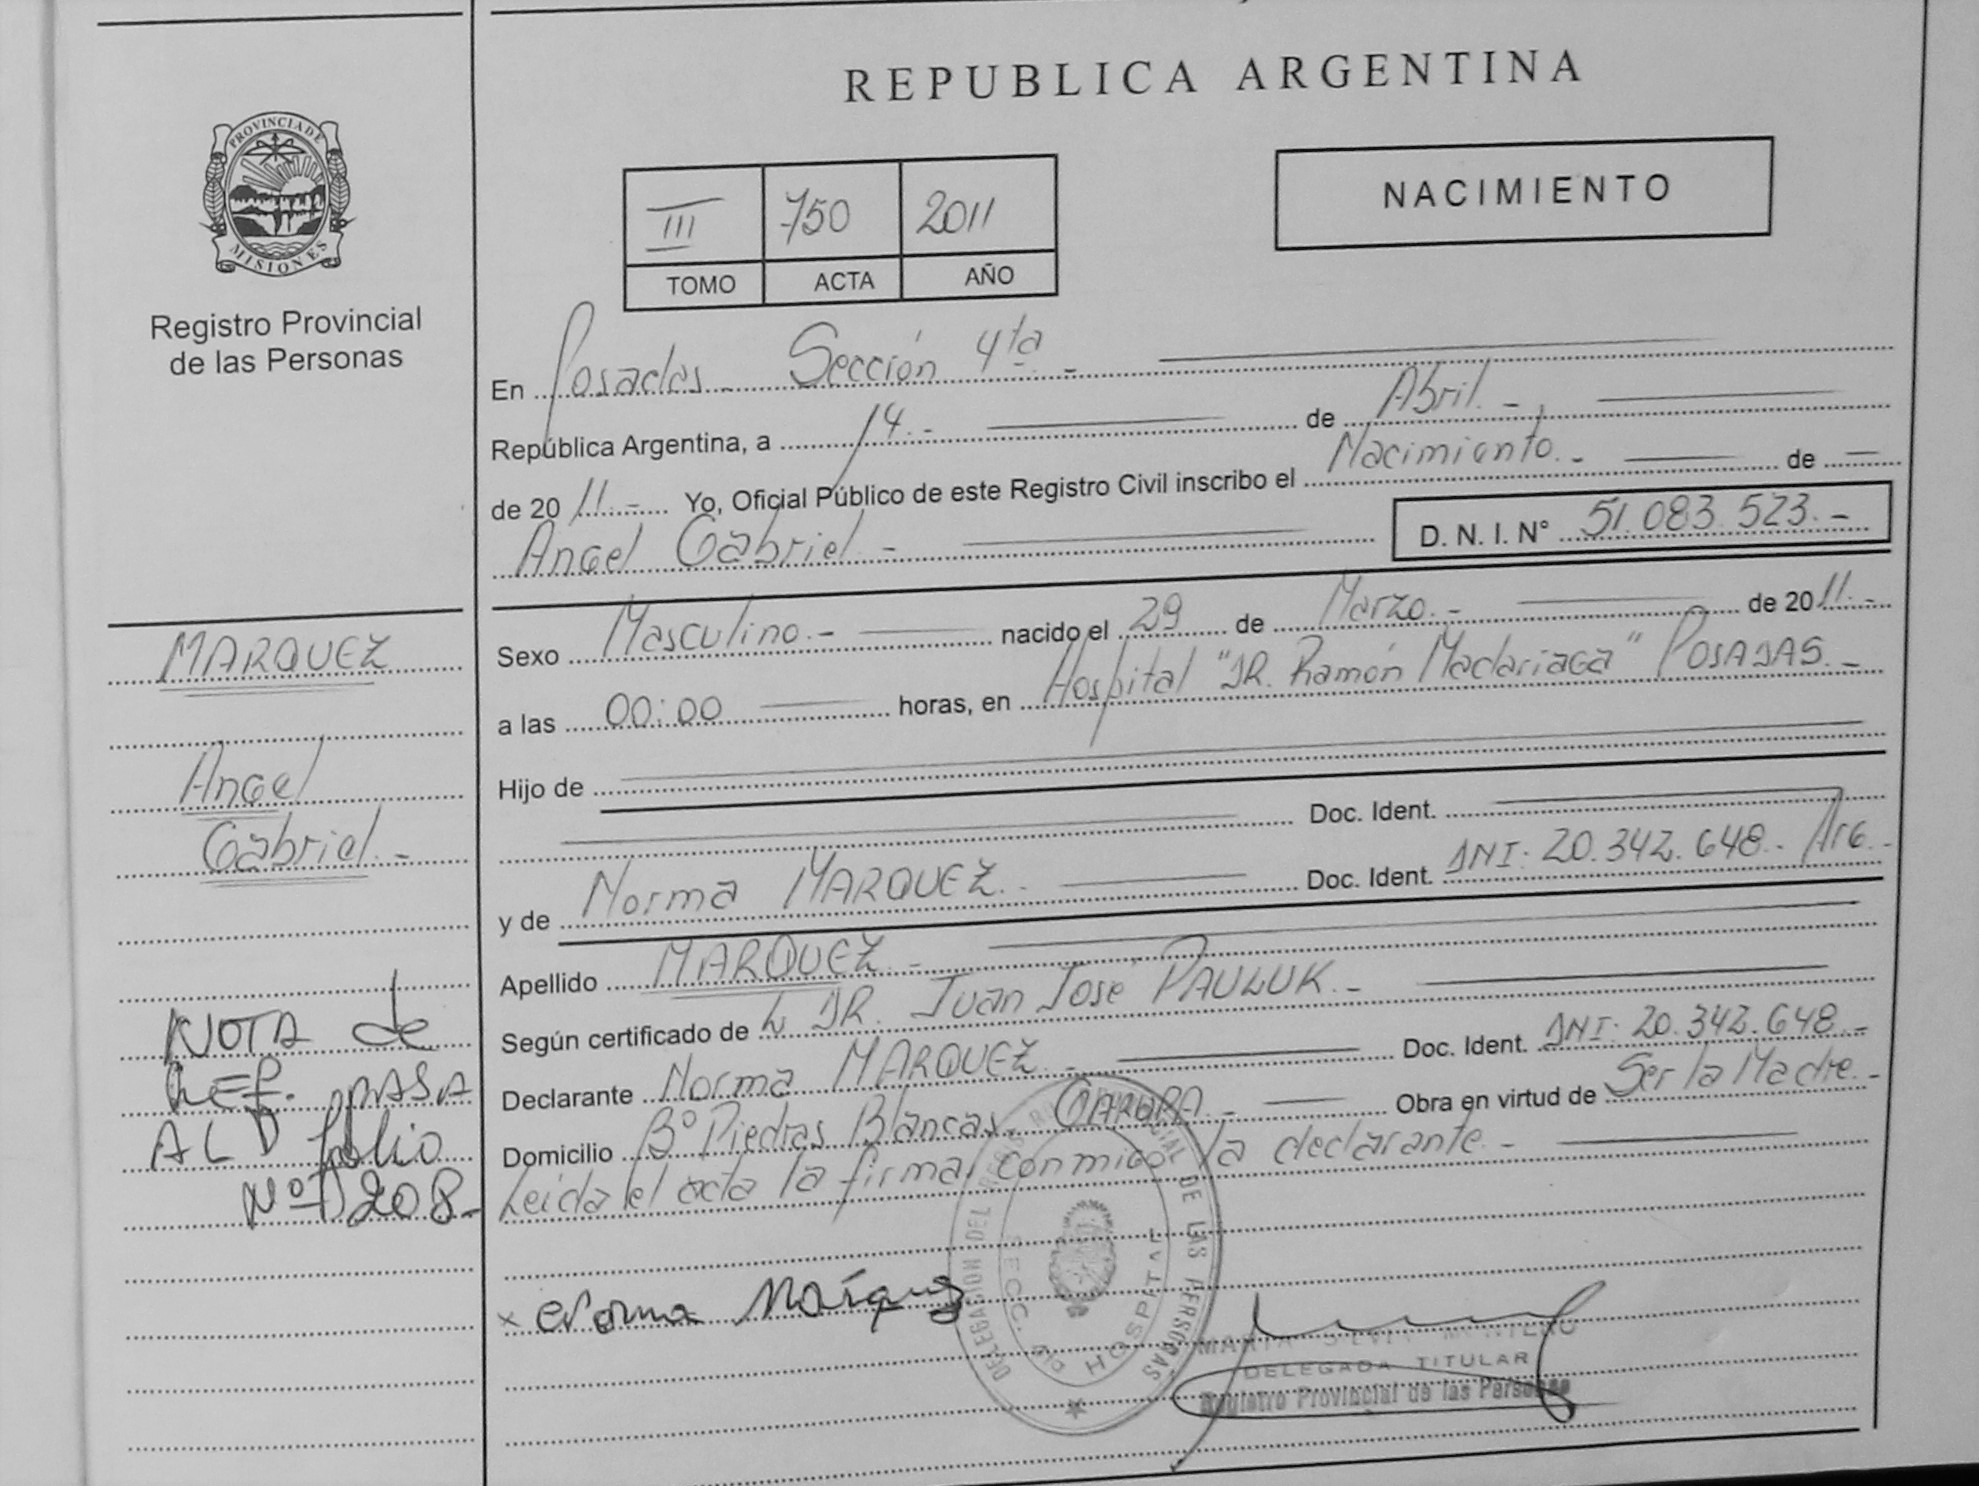 REPUBLICA ARGENTINA
PROVINCIA DE
MISIONES
Registro Provincial
de las Personas
III 750 2011
TOMO ACTA AÑO
NACIMIENTO
En Posadas - Sección 4ta. -
República Argentina, a 14. - de Abril. -
de 2011.- Yo, Oficial Público de este Registro Civil inscribo el Nacimiento. - de
Angel Gabriel. - D. N. I. N° 51.083.523. -
Sexo Masculino. - nacido el 29 de Marzo. - de 2011. -
a las 00:00 horas, en Hospital "DR. Ramón Madariaga" POSADAS. -
Hijo de
Doc. Ident.
y de Norma MARQUEZ. - Doc. Ident. DNI: 20.342.648. - Arg. -
Apellido MARQUEZ. -
Según certificado de DR. Juan José PAULUK. -
Declarante Norma MARQUEZ. - Doc. Ident. DNI: 20.342.648. -
Domicilio B° Piedras Blancas - GARUPA. - Obra en virtud de Ser la Madre. -
Leida el acta la firma conmigo la declarante. -
MARQUEZ
Angel
Gabriel. -
NOTA de
REF. PASA
AL D folio
Nº 208-
x Norma Márquez
DELEGACION DEL REGISTRO PROVINCIAL DE LAS PERSONAS
SECC. 4ta HOSPITAL
DELEGADA TITULAR
Registro Provincial de las Personas